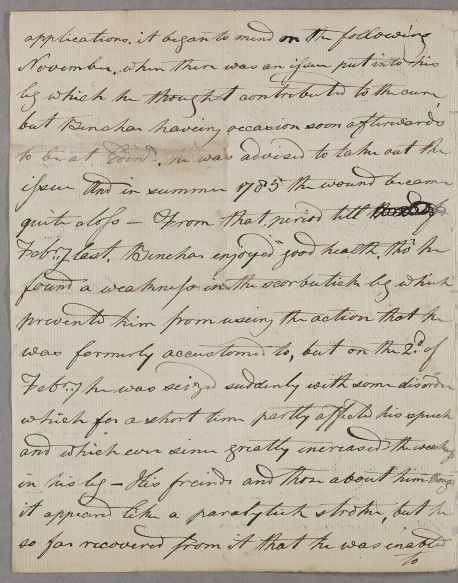 applications. it began to mend on the following
November. when there was an issue put into his
leg which he thought contributed to the cure,
but Binchas having occasion soon afterwards
to be at Edinr. he was advised to take out the
issue And in summer 1785 the wound became
quite close — From that period till
Febry. last, Binchas enjoyed good health, tho he
found a weakness in the scorbutick leg which
prevented him from useing the action that he
was formerly accustomed to, but on the 2d. of
Febry he was seized suddenly with some disorder
which for a short time partly affected his speech
and which ever since greatly increased the weakness
in his leg — His freinds and those about him thought
it appeard like a paralytick stroke, but he
so far recovered from it that he was enabled
to